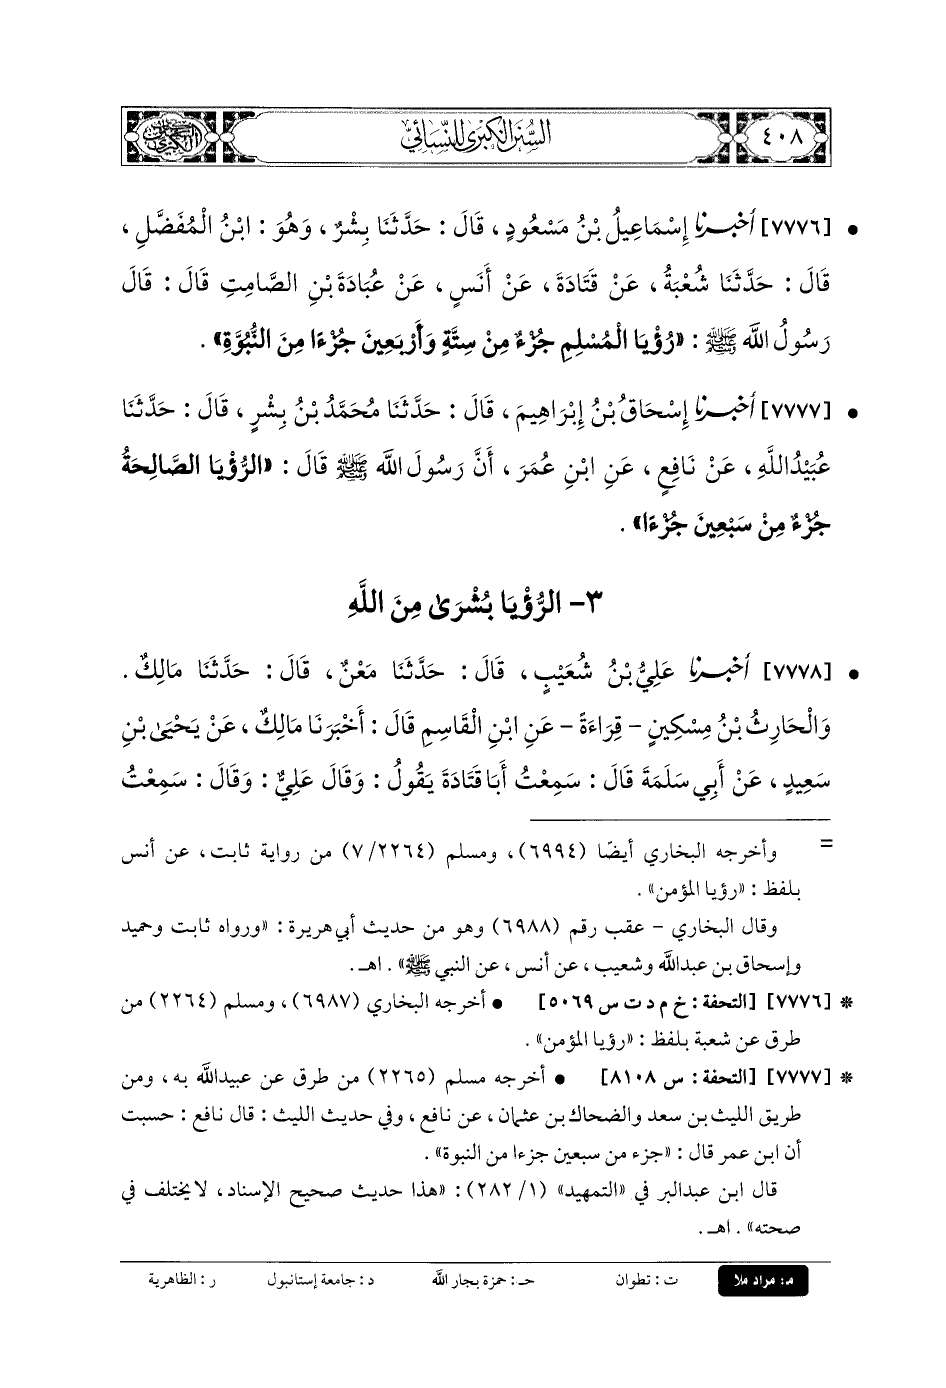 ٤٠٨
السنن الكبرى للنسائي
السنن الكبرى
• [٧٧٧٦] أَخْبَرَنا إِسْمَاعِيلُ بْنُ مَسْعُودٍ، قَالَ : حَدَّثَنَا بِشْرٌ، وَهُوَ : ابْنُ الْمُفَضَّلِ،
قَالَ : حَدَّثَنَا شُعْبَةُ، عَنْ قَتَادَةَ، عَنْ أَنَسٍ، عَنْ عُبَادَةَ بْنِ الصَّامِتِ قَالَ : قَالَ
رَسُولُ اللَّه ﷺ : «رُؤْيَا الْمُسْلِمِ جُزْءٌ مِنْ سِتَّةٍ وَأَرْبَعِينَ جُزْءًا مِنَ النُّبُوَّةِ» .
• [٧٧٧٧] أَخْبَرَنا إِسْحَاقُ بْنُ إِبْرَاهِيمَ، قَالَ : حَدَّثَنَا مُحَمَّدُ بْنُ بِشْرٍ، قَالَ : حَدَّثَنَا
عُبَيْدُاللَّهِ، عَنْ نَافِعٍ، عَنِ ابْنِ عُمَرَ، أَنَّ رَسُولَ اللَّه ﷺ قَالَ : «الرُّؤْيَا الصَّالِحَةُ
جُزْءٌ مِنْ سَبْعِينَ جُزْءًا» .
٣- الرُّؤْيَا بُشْرَىٰ مِنَ اللَّهِ
• [٧٧٧٨] أَخْبَرَنا عَلِيُّ بْنُ شُعَيْبٍ، قَالَ : حَدَّثَنَا مَعْنٌ، قَالَ : حَدَّثَنَا مَالِكٌ .
وَالْحَارِثُ بْنُ مِسْكِينٍ - قِرَاءَةً - عَنِ ابْنِ الْقَاسِمِ قَالَ : أَخْبَرَنَا مَالِكٌ، عَنْ يَحْيَىٰ بْنِ
سَعِيدٍ، عَنْ أَبِي سَلَمَةَ قَالَ : سَمِعْتُ أَبَا قَتَادَةَ يَقُولُ : وَقَالَ عَلِيٌّ : وَقَالَ : سَمِعْتُ
= وأخرجه البخاري أيضًا (٦٩٩٤)، ومسلم (٧/٢٢٦٤) من رواية ثابت، عن أنس
بلفظ : «رؤيا المؤمن» .
وقال البخاري - عقب رقم (٦٩٨٨) وهو من حديث أبي هريرة : «ورواه ثابت وحميد
وإسحاق بن عبدالله وشعيب، عن أنس، عن النبي ﷺ» . اهـ.
* [٧٧٧٦] [التحفة : خ م د ت س ٥٠٦٩] • أخرجه البخاري (٦٩٨٧)، ومسلم (٢٢٦٤) من
طرق عن شعبة بلفظ : «رؤيا المؤمن» .
* [٧٧٧٧] [التحفة : س ٨١٠٨] • أخرجه مسلم (٢٢٦٥) من طرق عن عبيدالله به، ومن
طريق الليث بن سعد والضحاك بن عثمان، عن نافع، وفي حديث الليث : قال نافع : حسبت
أن ابن عمر قال : «جزء من سبعين جزءا من النبوة» .
قال ابن عبدالبر في «التمهيد» (١/ ٢٨٢) : «هذا حديث صحيح الإسناد، لا يختلف في
صحته» . اهـ.
م: مراد ملا ت : تطوان حـ : حمزة بجار الله د : جامعة إستانبول ر : الظاهرية